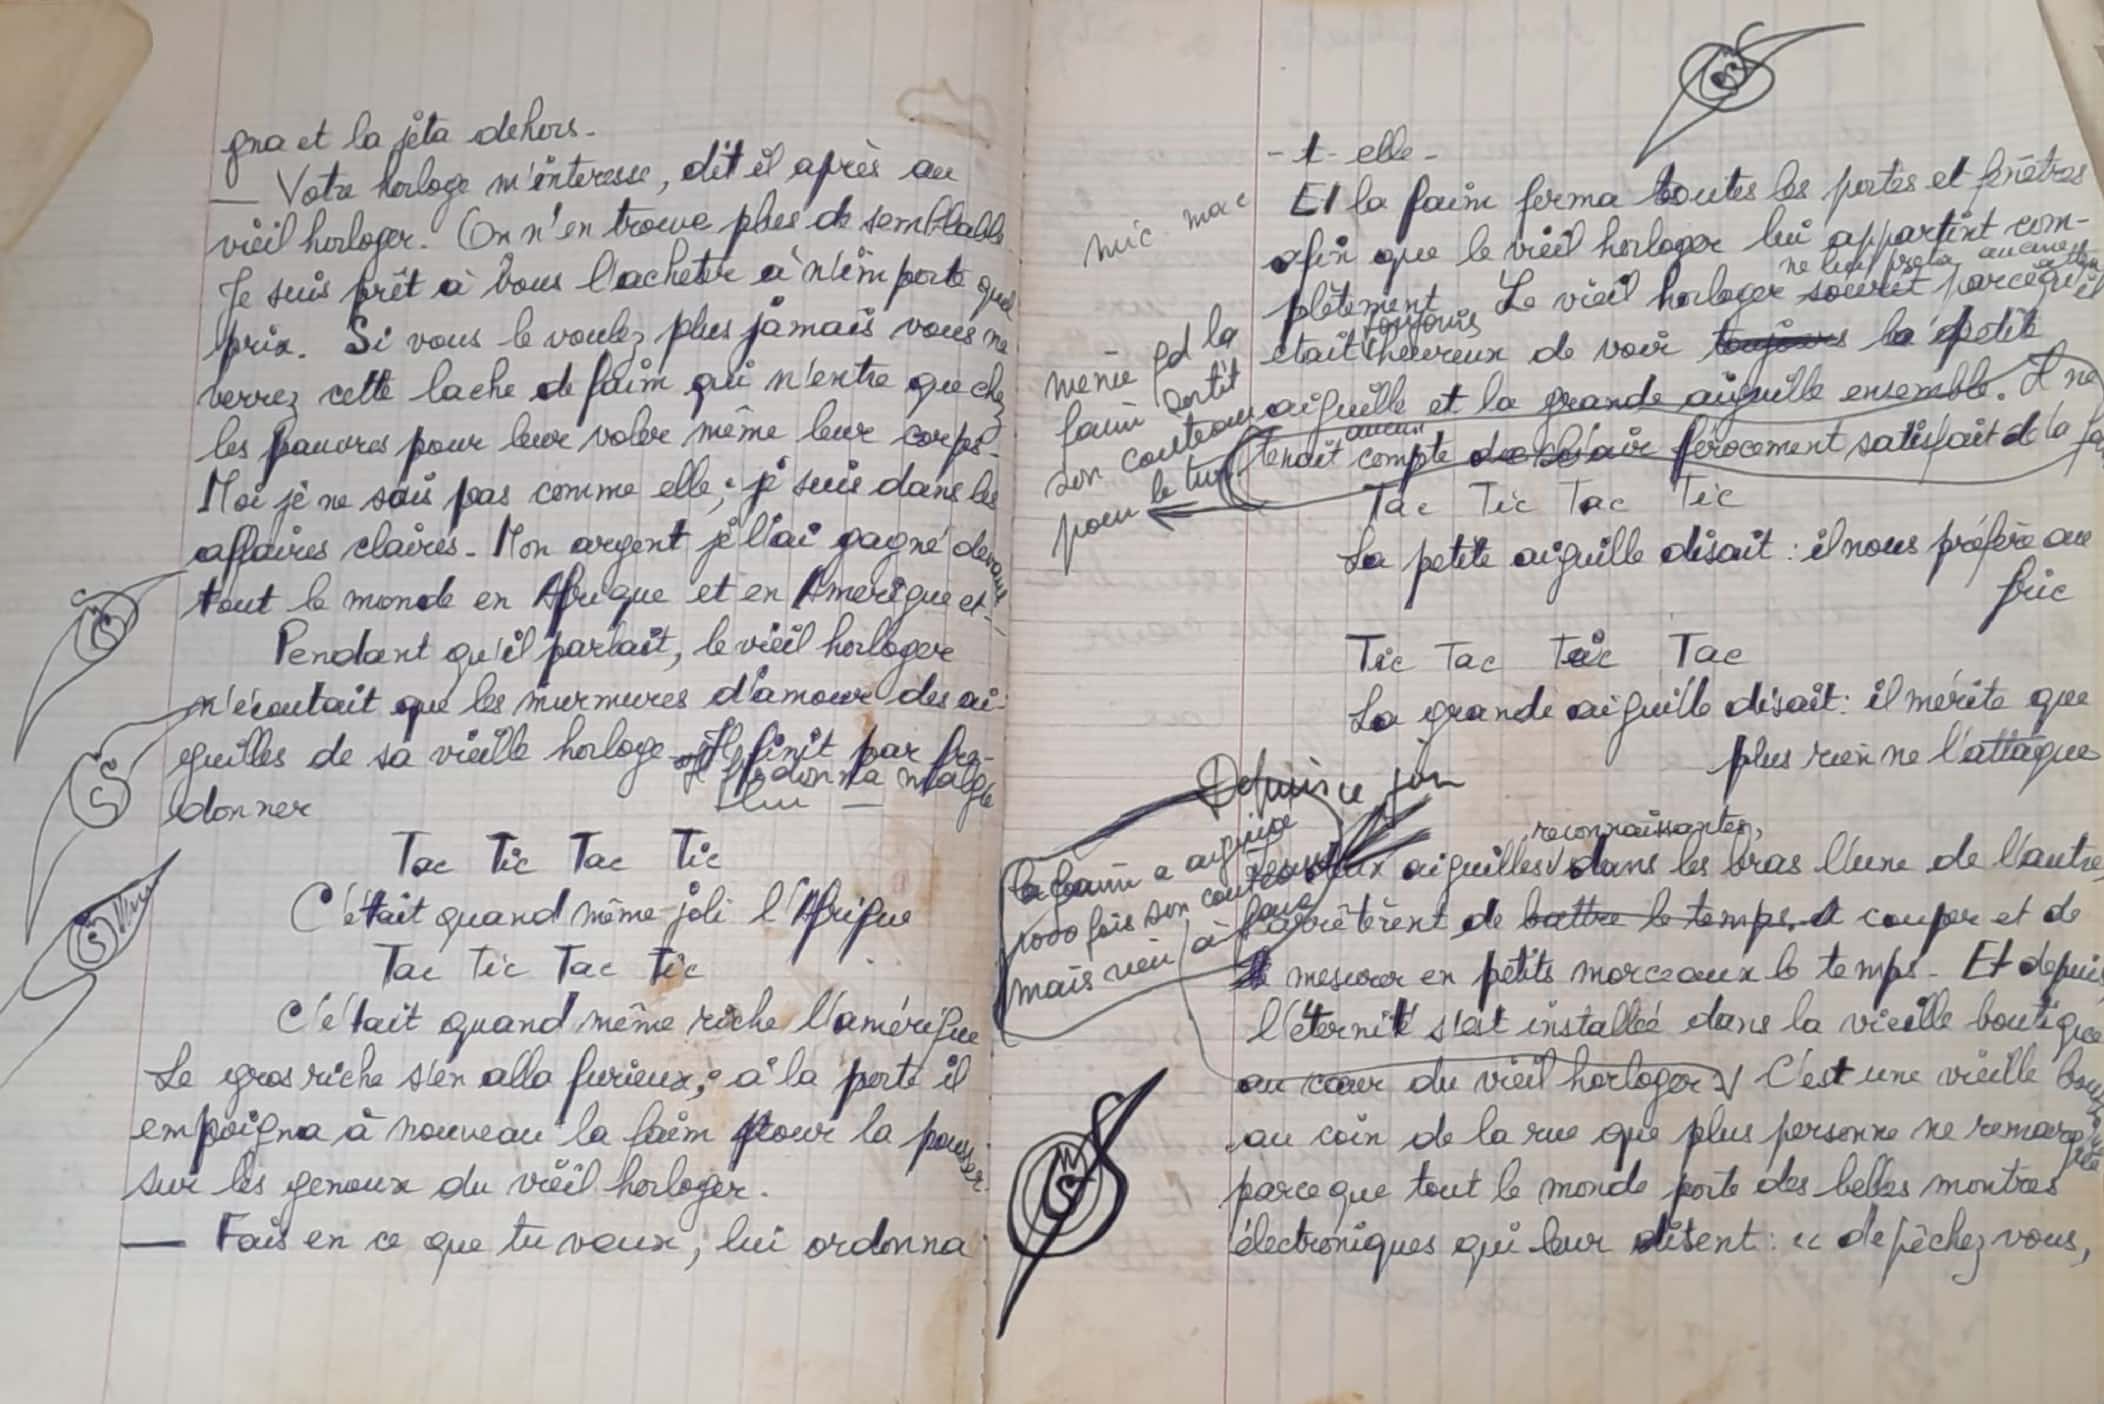 gna et la jeta dehors.
— Votre horloge m'interesse, dit il après au
vieil horloger. On n'en trouve plus de semblable.
Je suis prêt à vous l'acheter à n'importe quel
prix. Si vous le voulez plus jamais vous ne
verrez cette lache de faim qui n'entre que chez
les pauvres pour leur voler même leur corps.
Moi je ne suis pas comme elle, je suis dans les
affaires claires. Mon argent je l'ai gagné devant
tout le monde en Afrique et en Amerique et..
Pendant qu'il parlait, le vieil horloger
n'écoutait que les murmures d'amour des ai-
guilles de sa vieille horloge. Il finit par fre-
donner
Il fredonna malgré
lui —
Tac Tic Tac Tic
C'était quand même joli l'Afrique
Tac Tic Tac Tic
C'était quand même riche l'amérique
Le gros riche s'en alla furieux; à la porte il
empoigna à nouveau la faim pour la pousser
sur les genoux du vieil horloger.
— Fais en ce que tu veux, lui ordonna
- t - elle -
Et la faim ferma toutes les portes et fenêtres
afin que le vieil horloger lui appartint com-
plètement. Le vieil horloger sourit parcequ'il
ne lui preta aucune
était toujours heureux de voir toujours la petite
aiguille et la grande aiguille ensemble. Il ne
tenait aucun compte de l'air férocement satisfait de la
mic mac
même qd la
faim sortit
son couteau
pour le tuer
Tac Tic Tac Tic
La petite aiguille disait : il nous préfère au
fric
Tic Tac Tic Tac
La grande aiguille disait : il mérite que
plus rien ne l'attaque
Depuis ce jour
la faim a aiguisé
1000 fois son couteau
mais rien à faire
aiguilles, reconnaissantes, dans les bras l'une de l'autre,
arrêtèrent de battre le temps. et couper et de
mesurer en petits morceaux le temps. Et depuis
l'éternité s'est installée dans la vieille boutique
au cœur du vieil horloger. C'est une vieille boutique
au coin de la rue que plus personne ne remarque
parce que tout le monde porte des belles montres
électroniques qui leur disent : « depêchez vous,